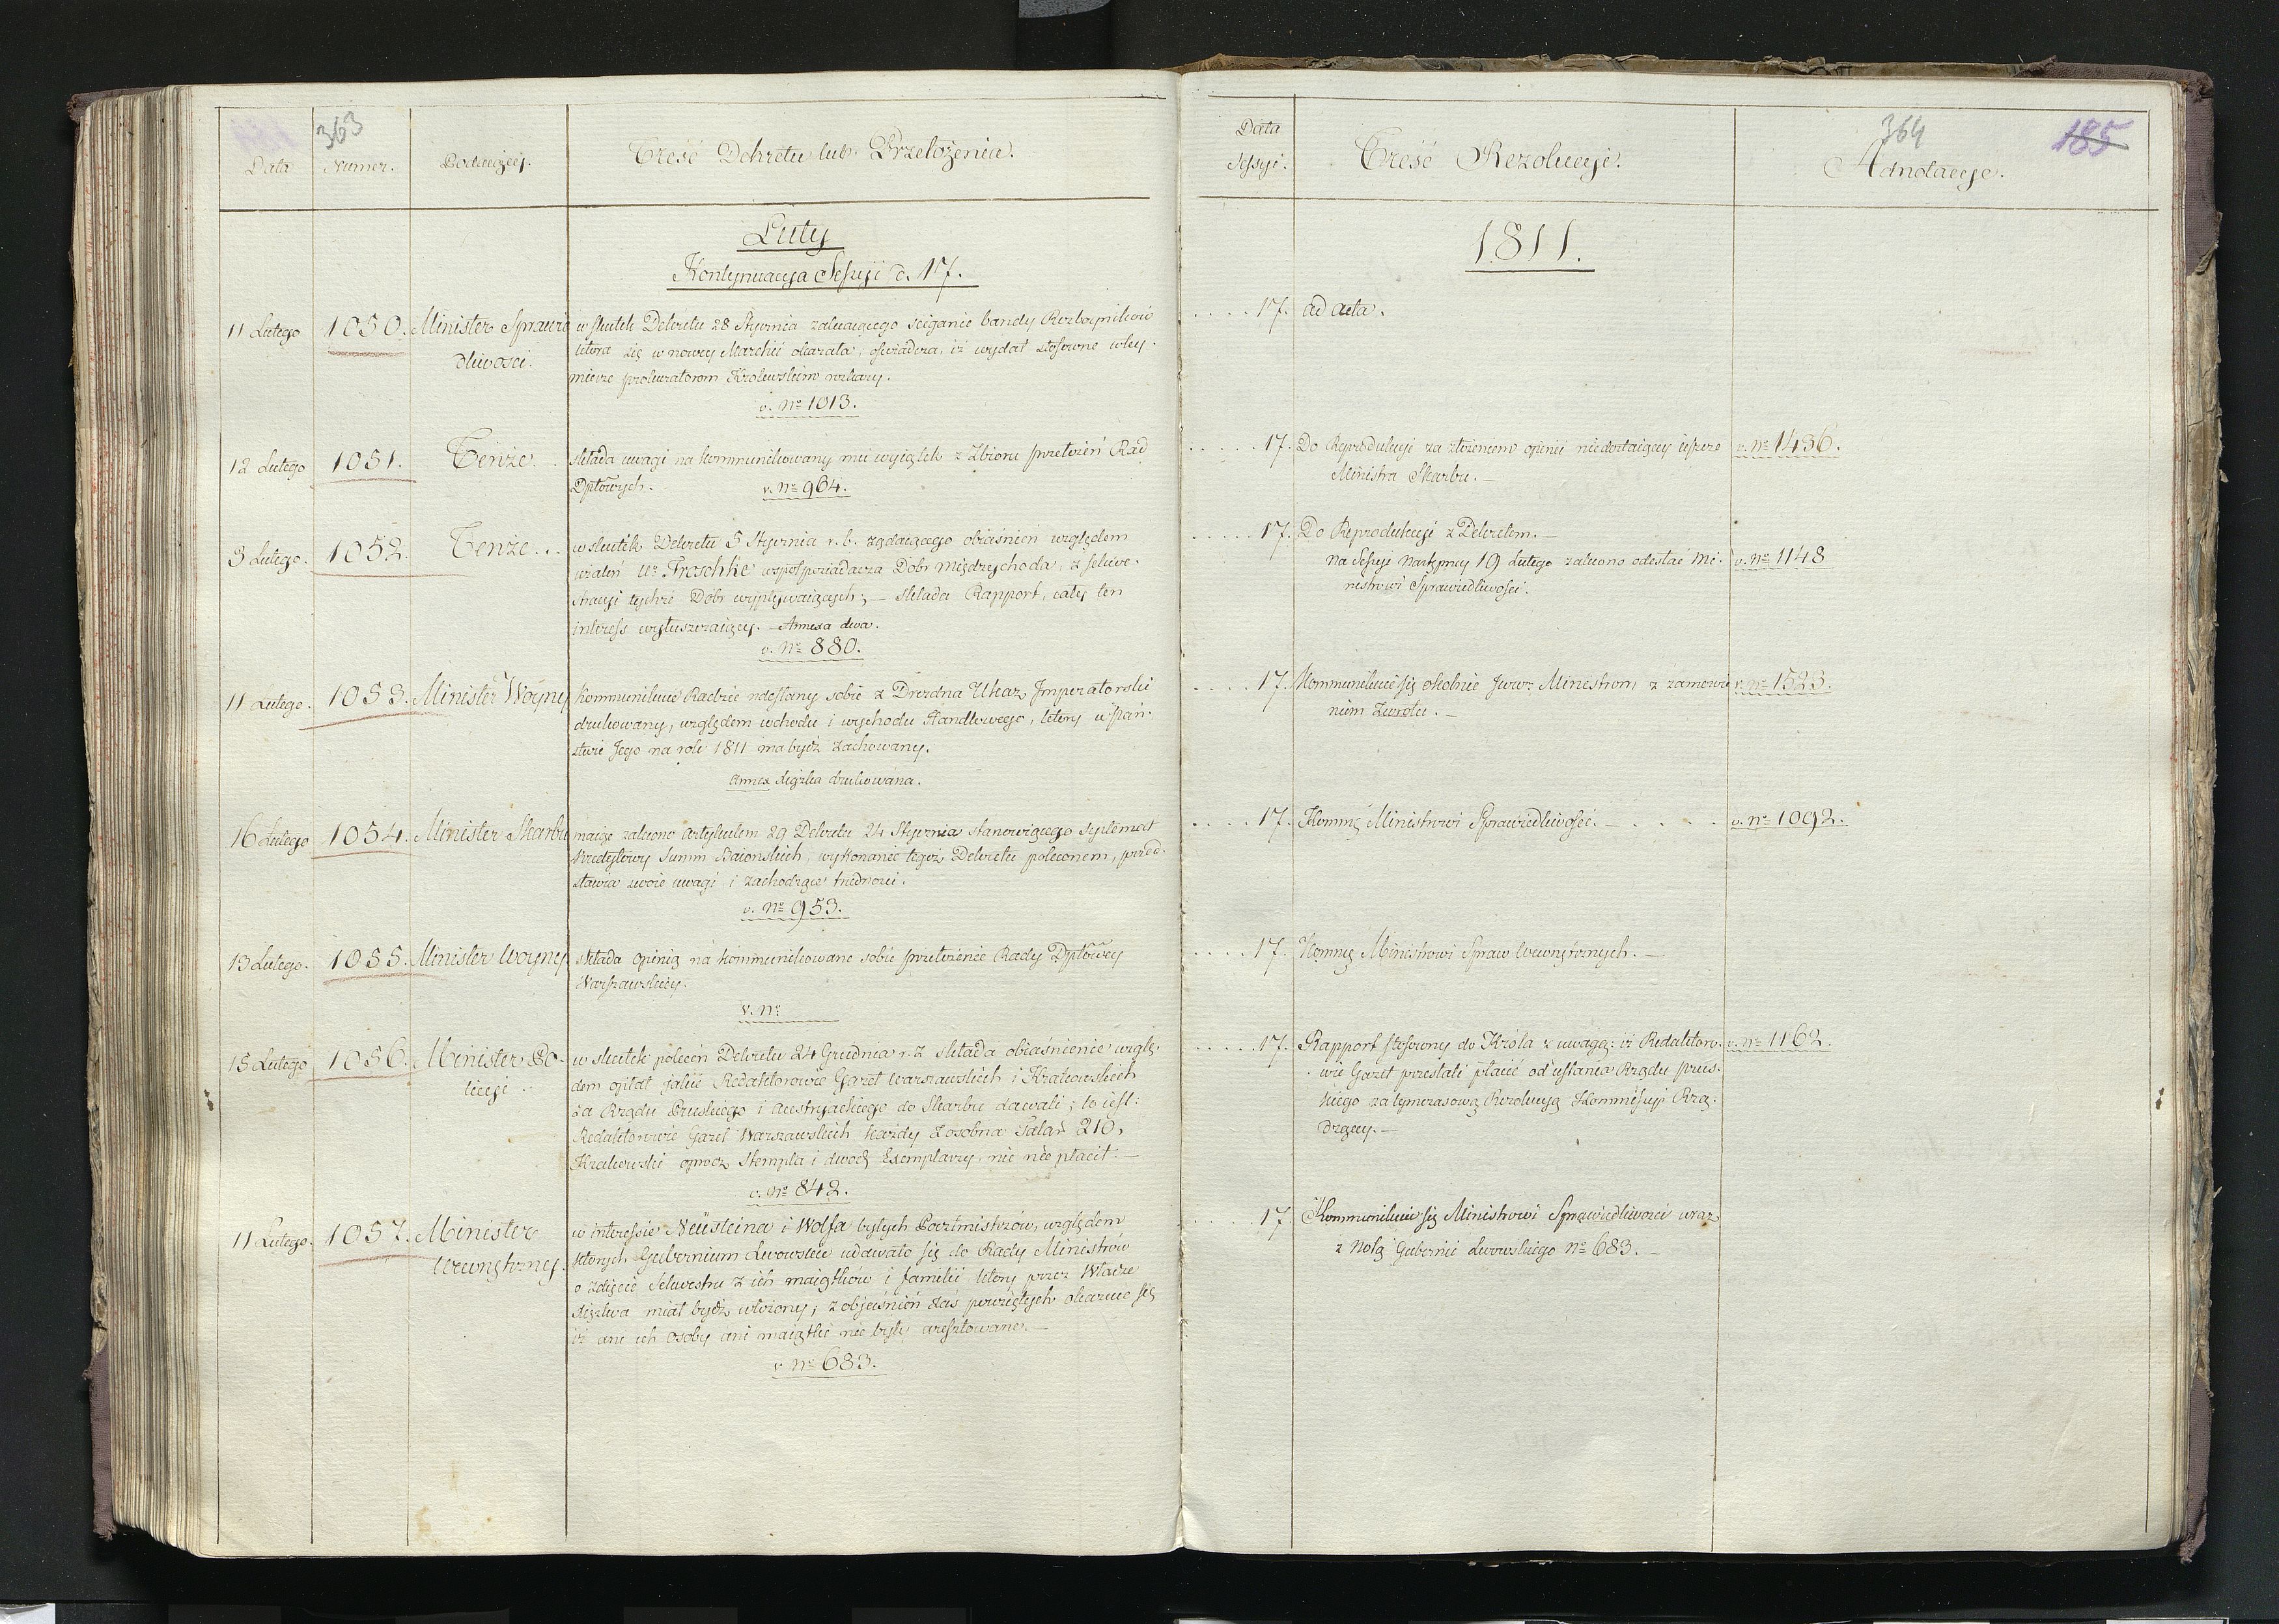 363
Data
Numer.
Podaiący.
Treść Dekretu lub Przełożenia.
Luty
Kontynuacya Sessyi d. 17.
11 Lutego
1050.
Minister Sprawie
dliwosci.
w skutek Dekretu 28 Stycznia zalecaiącego sciganie bandy Rozboynikow
ktora się w nowey Marchii okazała, oświadcza, iż wydał stosowne w tey
mierze prokuratorom Krolewskim rozkazy.
v. Nº 1013.
12 Lutego
1051.
Tenże.
składa uwagi na kommunikowany mu wyiątek z Zbioru przełożeń Rad
Dptowych. v. Nº 964.
3 Lutego.
1052.
Tenże...
w skutek Dekretu 5 Stycznia r. b. żądaiącego obiaśnień względem
użaleń Ur Troschke wspołposiadacza Dobr Międzychoda, z sekwe-
stracyi tychże Dobr wypływaiących; — składa Rapport, cały ten
interess wyłuszczaiący. — Annexa dwa.
v. Nº 880.
11 Lutego.
1053.
Minister Woyny
kommunikuie Radzie nadesłany sobie z Drezdna Ukaz Imperatorski
drukowany, względem wchodu i wychodu Handlowego, ktory w Pań-
stwie Jego na rok 1811 ma bydź zachowany.
Annex książka drukowana.
16 Lutego
1054.
Minister Skarbu
maiąc zalecone artykułem 29 Dekretu 24 Stycznia stanowiącego systemat
kredytowy Summ Baionskich, wykonanie tegoż Dekretu poleconem, przed-
stawia swoie uwagi i zachodzące trudności.
v. Nº 953.
13 Lutego.
1055.
Minister Woyny
składa opinią na kommunikowane sobie przełożenie Rady Dptowey
Warszawskiey.
v. Nº
15 Lutego
1056.
Minister Po-
licyi.
w skutek poleceń Dekretu 24 Grudnia r. z. składa obiaśnienie wzglę-
dem opłat jakie Redaktorowie Gazet Warszawskich i Krakowskich
za Rządu Pruskiego i Austryackiego do Skarbu dawali; to iest:
Redaktorowie Gazet Warszawskich każdy z osobna Talar: 210,
Krakowski oprocz Stempla i dwoch Exemplarzy, nic nie płacił. —
v. Nº 842.
11 Lutego.
1057.
Minister
Wewnętrzney.
w interessie Neüsteina i Wolfa byłych Poczmistrzów, względem
ktorych Gubernium Lwowskie udawało się do Rady Ministrów
o zdięcie Sekwestru z ich maiątków i familii ktory przez Władze
Xięstwa miał bydź włożony; z objaśnień zaś powziętych okazuie się
iż ani ich osoby ani maiątki nie były aresztowane. —
v. Nº 683.
364
185
Data
Sessyi.
Treść Rezolucyi.
Adnotacye.
1811.
.... 17. ad acta.
..... 17. Do Reprodukcyi za złożeniem opinii niedostaiącey ieszcze
Ministra Skarbu. —
v. Nº 1436.
..... 17. Do Reprodukcyi z Dekretem. —
na Sessyi następney 19 Lutego zalecono odesłać Mi-
nistrowi Sprawiedliwości.
v. Nº 1148
.... 17. Kommunikuie się okolnie JWW: Ministrom, z zamowie
niem zwrotu. —
v. Nº 1523.
.... 17. Kommę Ministrowi Sprawiedliwości. —
v. Nº 1092.
.... 17. Kommę Ministrowi Spraw Wewnętrznych. —
..... 17. Rapport stosowny do Króla z uwagą: iż Redaktoro-
wie Gazet przestali płacić od ustania Rządu prus-
kiego za tymczasową Rezolucyą Kommissyi Rzą-
dzącey. —
v. Nº 1162.
..... 17. Kommunikuie się Ministrowi Sprawiedliwości wraz
z Notą Gubernii Lwowskiego Nº 683. —